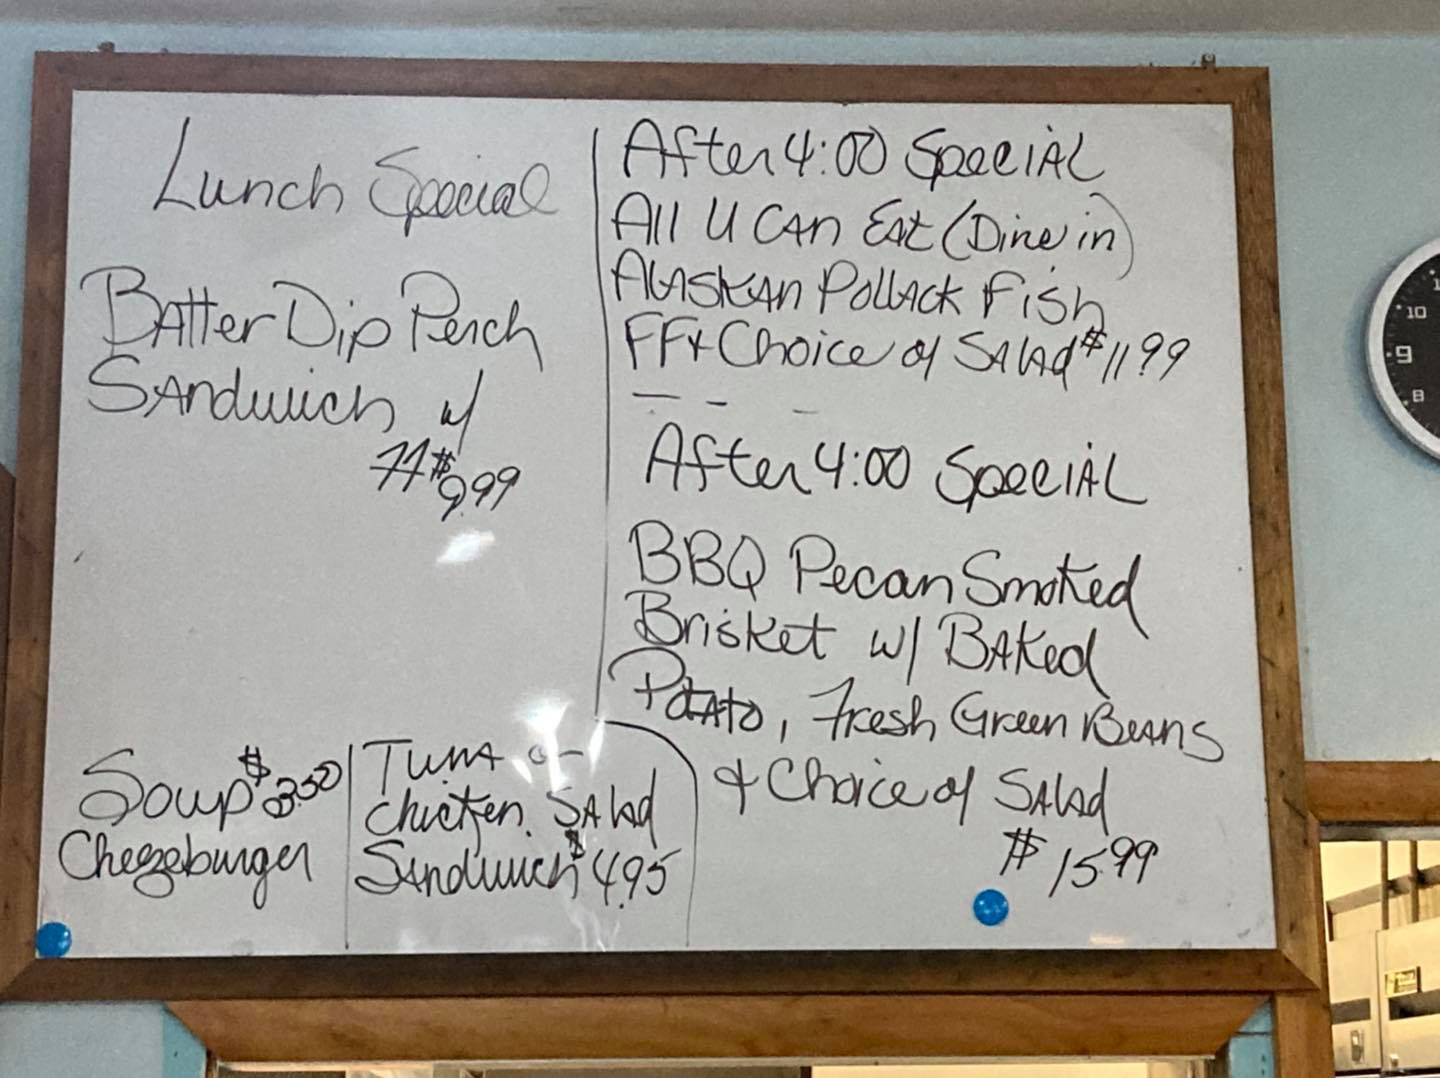 Lunch Special
Batter Dip Perch
Sandwich w/
FF $9.99
Soup $3.50
Cheezeburger
Tuna or
Chicken Salad
Sandwich $4.95
After 4:00 Special
All U Can Eat (Dine in)
Alaskan Pollack Fish
FF + Choice of Salad $11.99
After 4:00 Special
BBQ Pecan Smoked
Brisket w/ Baked
Potato, Fresh Green Beans
+ Choice of Salad
$15.99
10
9
8